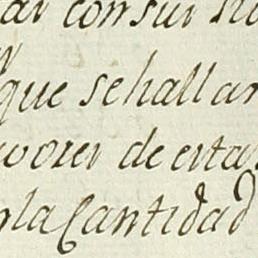 con sus
que se hallar
vores de esta
la Cantidad